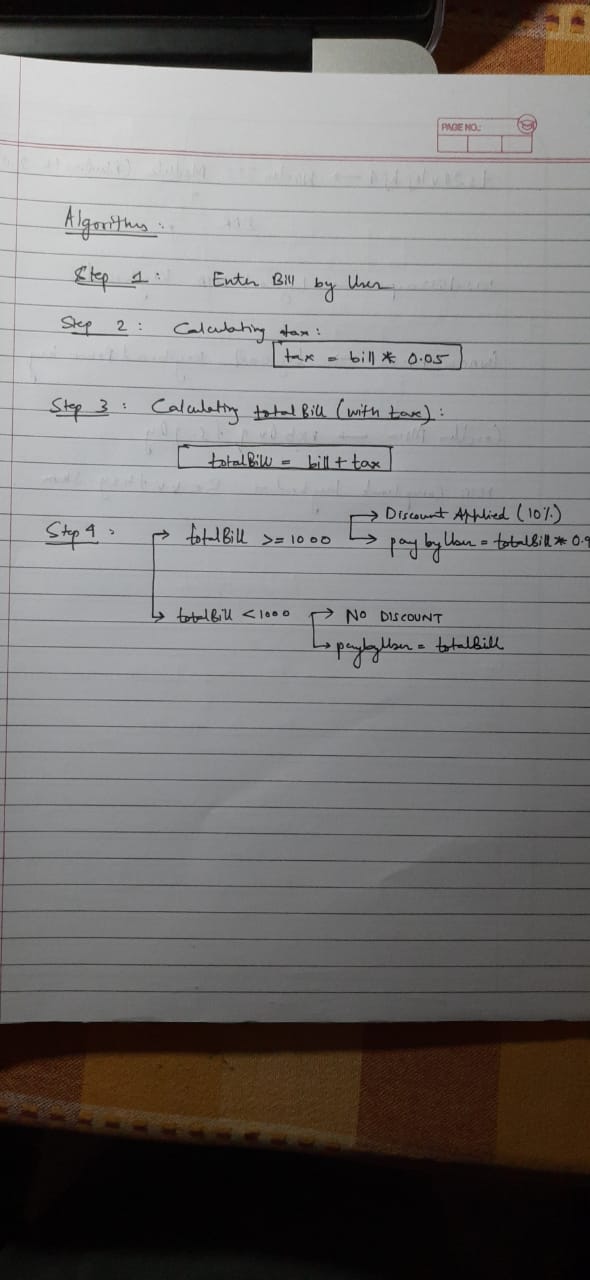 PAGE NO.:
Algorithm:
Step 1: Enter Bill by User
Step 2: Calculating tax:
tax = bill * 0.05
Step 3: Calculating totalBill (with tax):
totalBill = bill + tax
Step 4: → totalBill >= 1000 → Discount Applied (10%)
→ paybyUser = totalBill * 0.9
→ totalBill < 1000 → NO DISCOUNT
→ paybyUser = totalBill